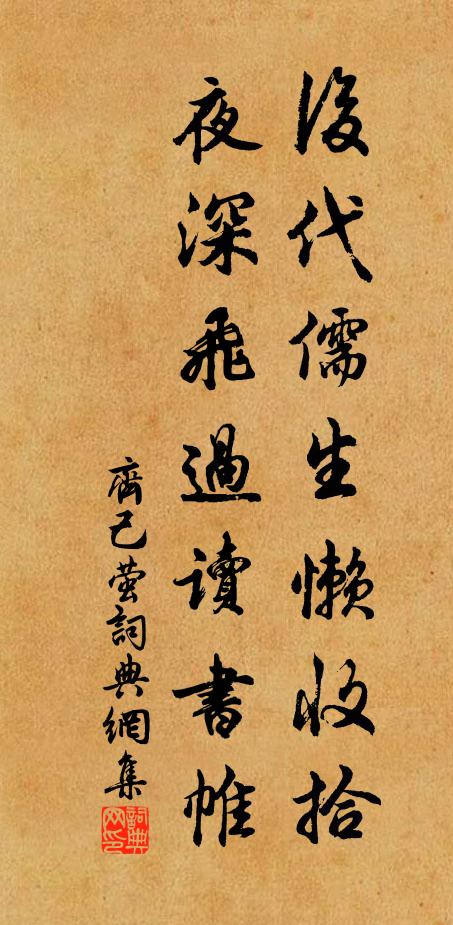 後代儒生懶收拾
夜深飛過讀書帷
齊己萤詞典網集
詞典网印